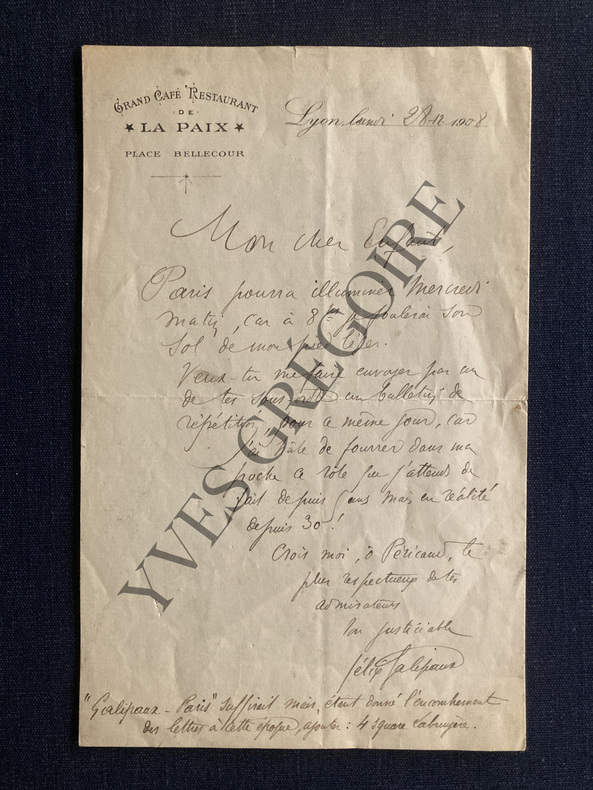 GRAND CAFÉ RESTAURANT
DE
LA PAIX
PLACE BELLECOUR
Lyon lundi 28-12 1908
Mon cher Enfant,
Paris pourra illuminer Mercredi
matin, car à 8h je foulerai son
sol de mon pied léger.
Veux-tu me faire envoyer par un
de tes sous-ord un bulletin de
répétition, pour ce même jour, car
j'ai hâte de fourrer dans ma
poche ce rôle que j'attends de
fait depuis 5 ans mais en réalité
depuis 30 !
Crois moi, ô Péricaud, le
plus respectueux de tes
admirateurs
Ton justiciable
Félix Galipaux
"Galipaux - Paris" suffirait mais, étant donné l'encombrement
des lettres à cette époque, ajouter : 4 square Labruyère.
YVES GRÉGOIRE